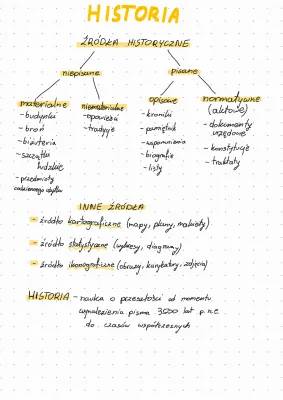 HISTORIA
ŹRÓDŁA HISTORYCZNE
niepisane
pisane
materialne
- budynki
- broń
- biżuteria
- szczątki
ludzkie
- przedmioty
codziennego użytku
niematerialne
- opowieści
- tradycje
opisowe
- kroniki
- pamiętnik
- wspomnienia
- biografie
- listy
normatywne
(aktowe)
- dokumenty
urzędowe
- konstytucje
- traktaty
INNE ŹRÓDŁA
- źródło kartograficzne (mapy, plany, makiety)
- źródło statystyczne (wykresy, diagramy)
- źródło ikonograficzne (obrazy, karykatury, zdjęcia)
HISTORIA - nauka o przeszłości od momentu
wynalezienia pisma 3500 lat p.n.e
do czasów współczesnych